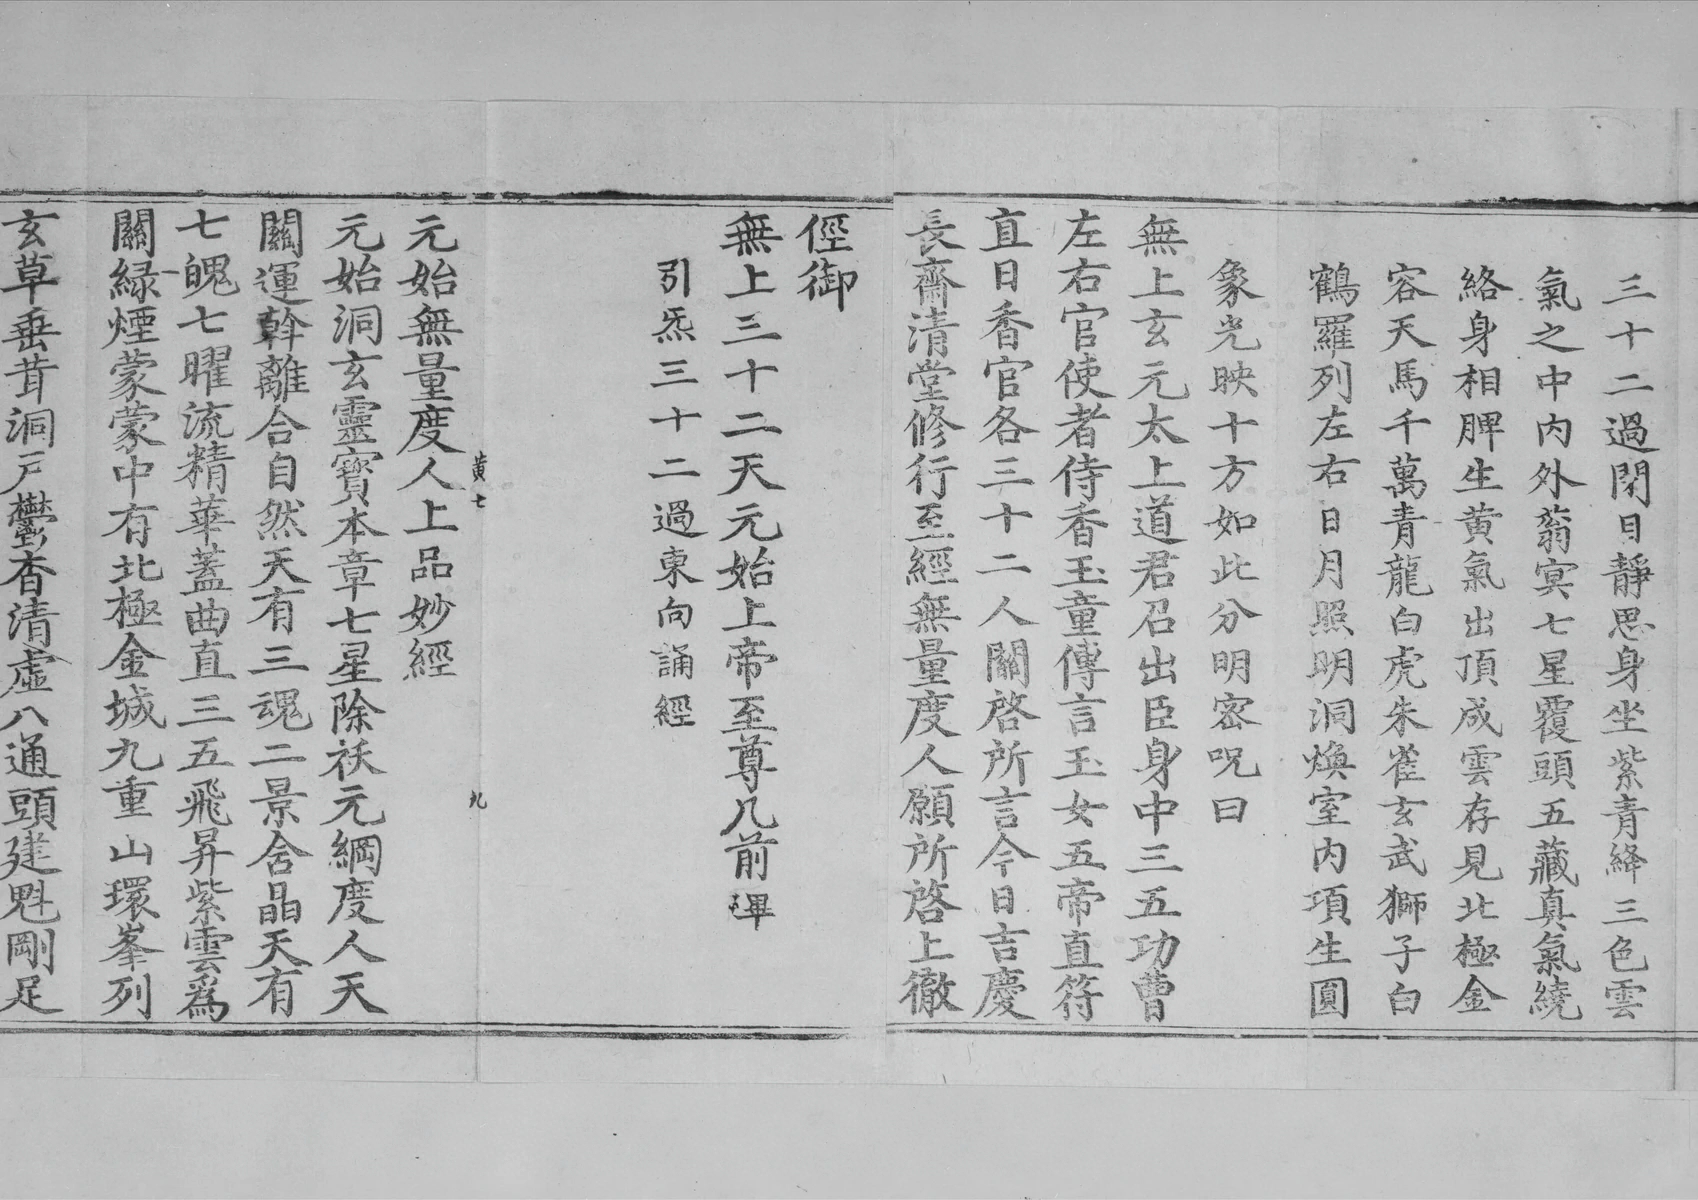 三十二過閉目靜思身坐紫青絳三色雲
氣之中内外蓊冥七星覆頭五藏真氣繞
絡身相脾生黄氣出頂成雲存見北極金
容天馬千萬青龍白虎朱雀玄武獅子白
鶴羅列左右日月照明洞煥室内項生圓
象光映十方如此分明密呪曰
無上玄元太上道君召出臣身中三五功曹
左右官使者侍香玉童傳言玉女五帝直符
直日香官各三十二人關啓所言今日吉慶
長齋清堂修行至經無量度人願所啓上徹
俓御
無上三十二天元始上帝至尊几前畢
引炁三十二過東向誦經
黄七
九
元始無量度人上品妙經
元始洞玄靈寶本章七星除祅元綱度人天
關運斡離合自然天有三魂二景含晶天有
七魄七曜流精華蓋曲直三五飛昇紫雲爲
關緑煙蒙蒙中有北極金城九重山環峯列
玄草垂茸洞戸鬱杳清虚八通頭建魁剛足